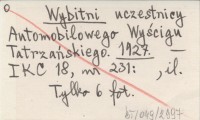 Wybitni uczestnicy
Automobilowego Wyścigu
Tatrzańskiego. 1927. –
IKC 18, nr 231: , il.
Tylko 6 fot.